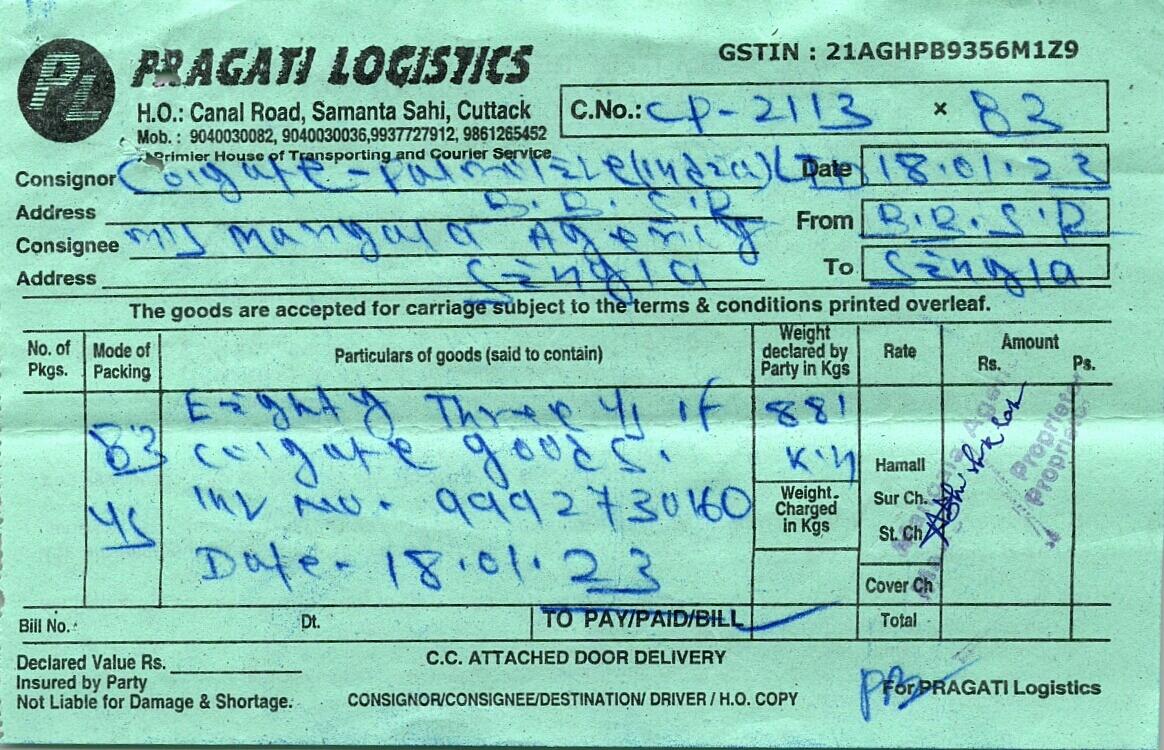 PL PRAGATI LOGISTICS
GSTIN : 21AGHPB9356M1Z9
H.O.: Canal Road, Samanta Sahi, Cuttack
Mob. : 9040030082, 9040030036,9937727912, 9861265452
A Primier House of Transporting and Courier Service
C.No.: CP-2113 × 83
Consignor Colgate-Palmolive(India)LTD Date 18.01.23
Address B.B.S.R From B.B.S.R
Consignee M/S Mangala Agency
Address Singla To Singla
The goods are accepted for carriage subject to the terms & conditions printed overleaf.
No. of Pkgs. Mode of Packing Particulars of goods (said to contain) Weight declared by Party in Kgs Rate Amount Rs. Ps.
Eighty Three 881
83 Colgate goods. Hamall
Inv No. 9992730160 Weight. Charged in Kgs Sur Ch.
St. Ch
Date- 18.01.23 Cover Ch
Proprietor
Proprietor
Bill No. Dt. TO PAY/PAID/BILL Total
Declared Value Rs.
C.C. ATTACHED DOOR DELIVERY
Insured by Party
Not Liable for Damage & Shortage.
CONSIGNOR/CONSIGNEE/DESTINATION/ DRIVER / H.O. COPY
For PRAGATI Logistics